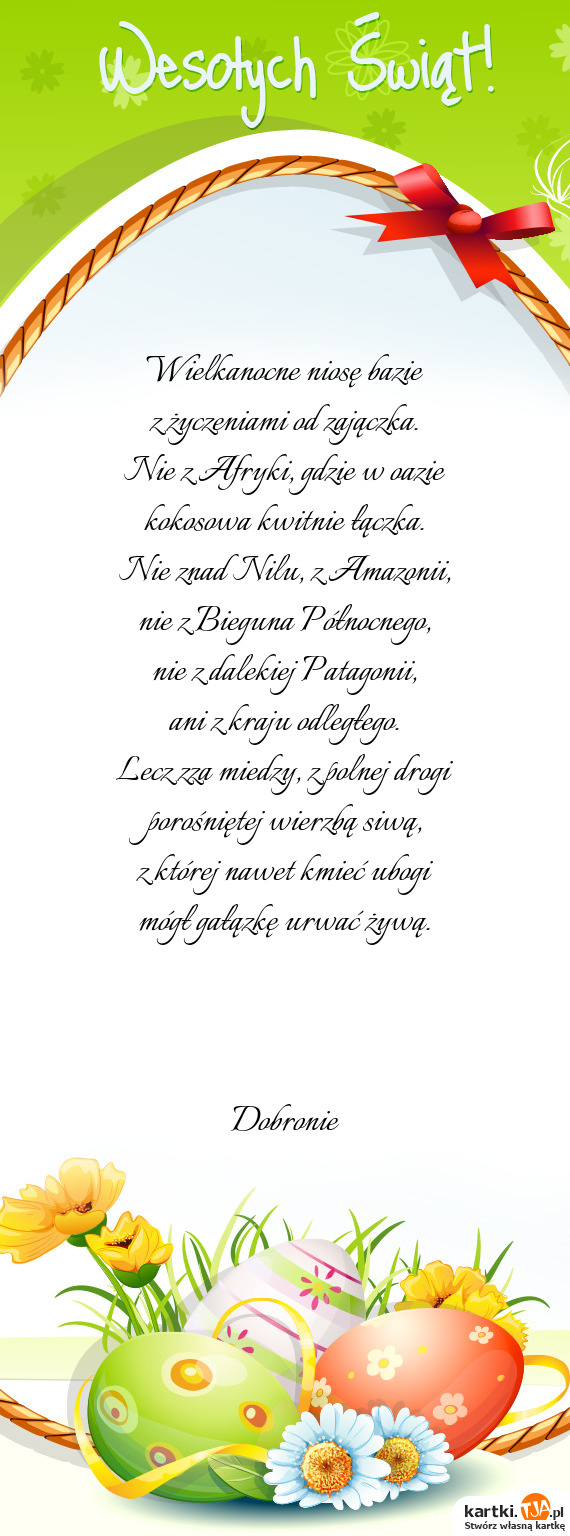 Wesołych Świąt!
Wielkanocne niosę bazie
z życzeniami od zajączka.
Nie z Afryki, gdzie w oazie
kokosowa kwitnie łączka.
Nie znad Nilu, z Amazonii,
nie z Bieguna Północnego,
nie z dalekiej Patagonii,
ani z kraju odległego.
Lecz zza miedzy, z polnej drogi
porośniętej wierzbą siwą,
z której nawet kmieć ubogi
mógł gałązkę urwać żywą.
Dobronie
kartki.TJA.pl
Stwórz własną kartkę